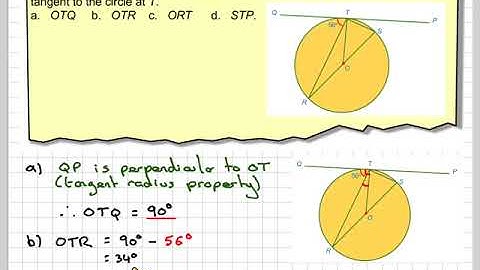 tangent to the circle at T.
a. OTQ b. OTR c. ORT d. STP.
Q T P
56°
S
O
R
a) QP is perpendicular to OT
(tangent radius property)
∴ OTQ = 90°
b) OTR = 90° - 56°
= 34°
Q T P
56°
S
O
R